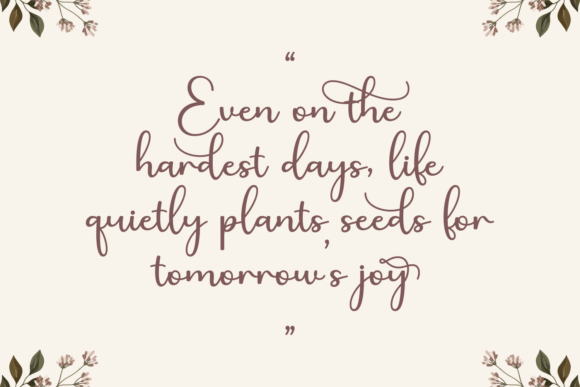 “
Even on the
hardest days, life
quietly plants seeds for
tomorrow's joy
”